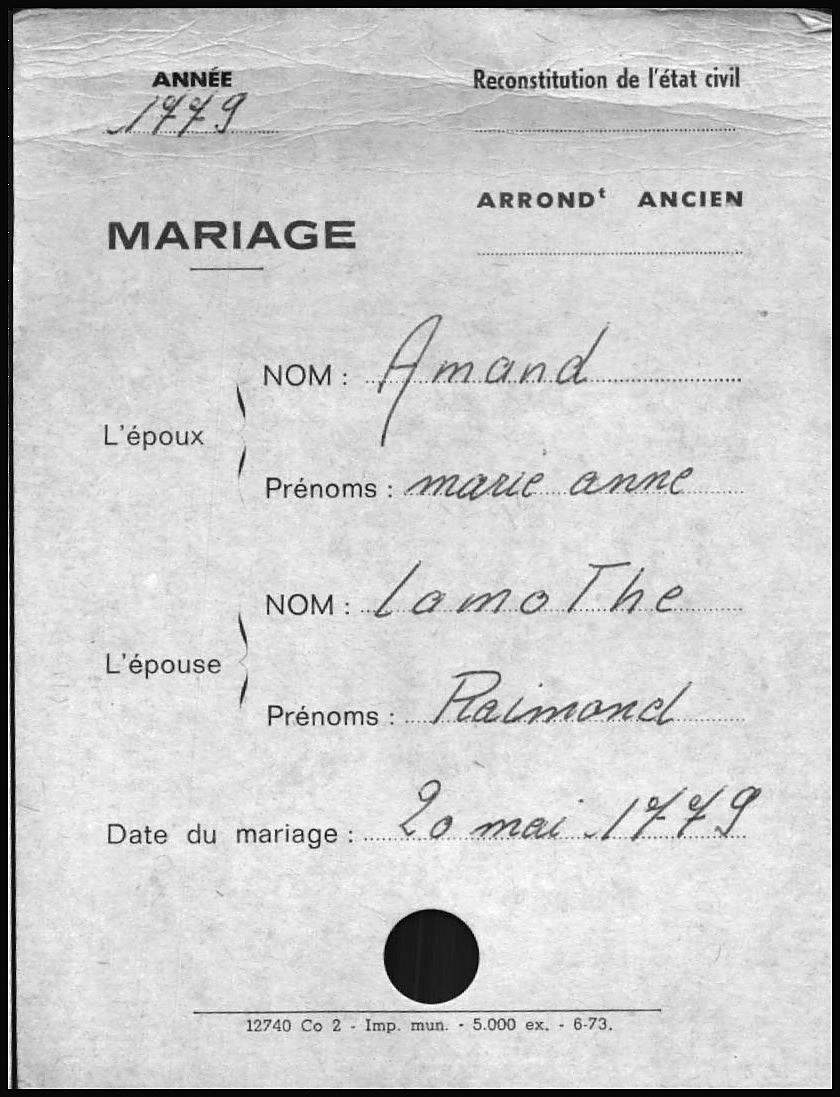 ANNÉE
1779
Reconstitution de l'état civil
ARRONDt ANCIEN
MARIAGE
L'époux
NOM : Amand
Prénoms : marie anne
L'épouse
NOM : lamoThe
Prénoms : Raimond
Date du mariage : 20 mai 1779
12740 Co 2 - Imp. mun. - 5.000 ex. - 6-73.